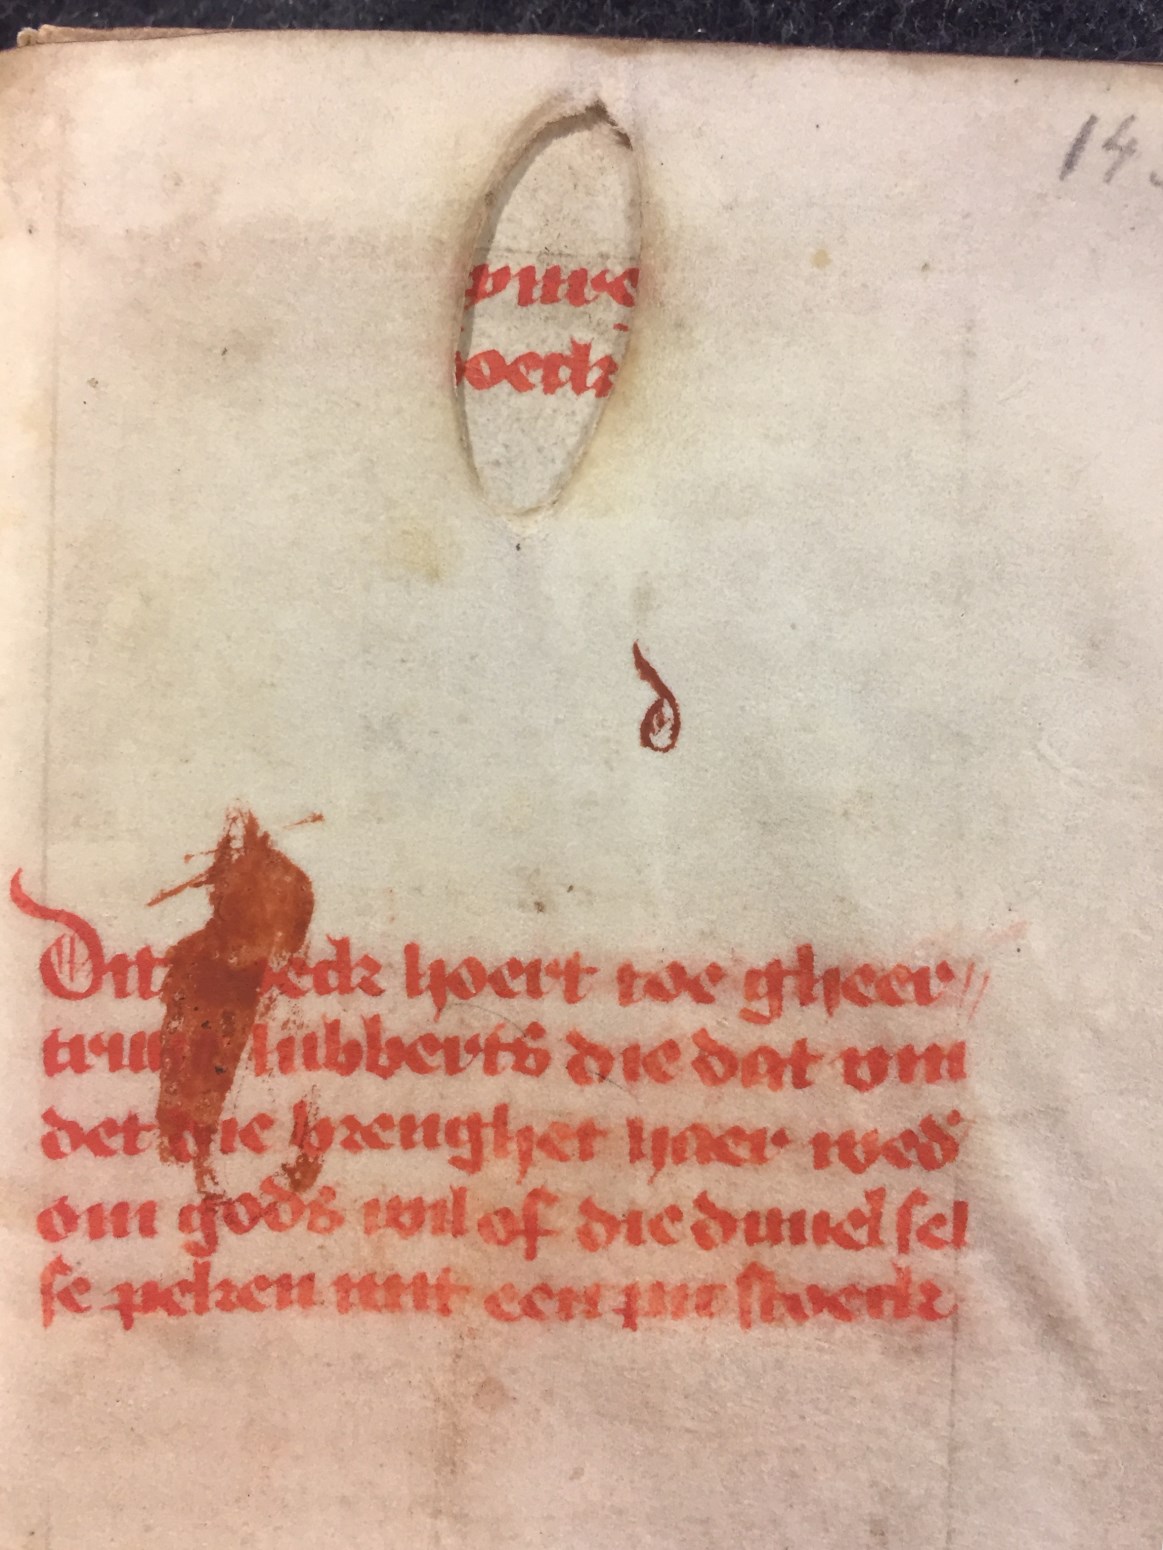 14
oeck
d
Dit boeck hoert toe gheer//
truyt lubberts die dat vin
det die brenghet haer wed'
om gods wil of die duuel sel
se peken mit een pur stoeck